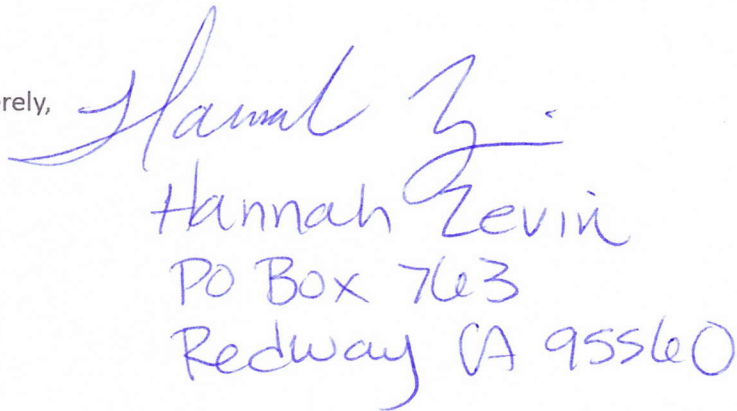 rely,
Hannah Z
Hannah Zevin
PO Box 763
Redway CA 95560